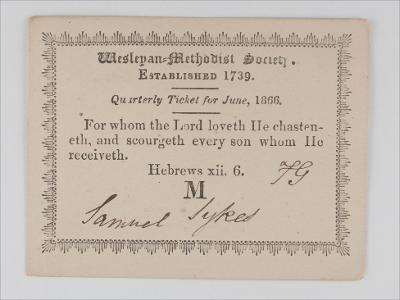 Wesleyan-Methodist Society.
ESTABLISHED 1739.
Quarterly Ticket for June, 1866.
For whom the Lord loveth He chasten-
eth, and scourgeth every son whom He
receiveth.
Hebrews xii. 6.
M
Samuel Sykes